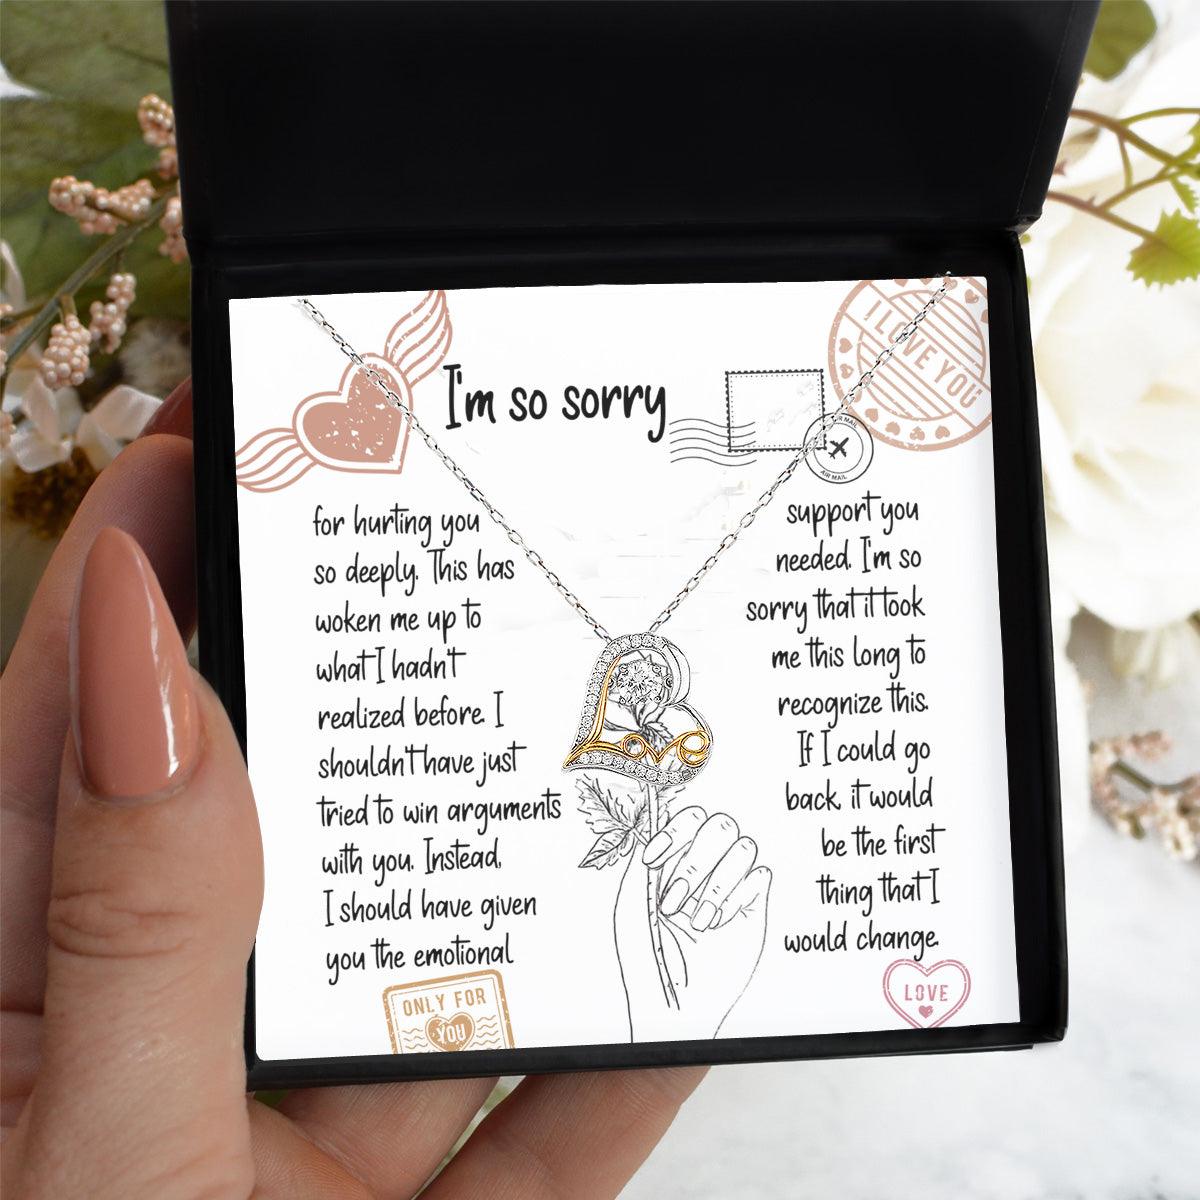 I'm so sorry
for hurting you
so deeply. This has
woken me up to
what I hadn't
realized before. I
shouldn't have just
tried to win arguments
with you. Instead,
I should have given
you the emotional
support you
needed. I'm so
sorry that it took
me this long to
recognize this.
If I could go
back, it would
be the first
thing that I
would change.
I LOVE YOU
AIR MAIL
AIR MAIL
Love
ONLY FOR
YOU
LOVE